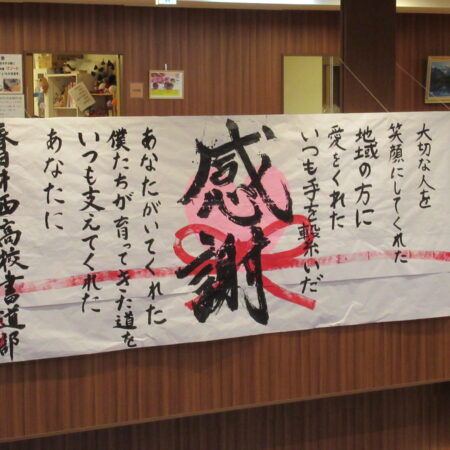 大切な人を
笑顔にしてくれた
地域の方に
愛をくれた
いつも手を繋いだ
感謝
あなたがいてくれた
僕たちが育ってきた道を
いつも支えてくれた
あなたに
春日井西高校書道部